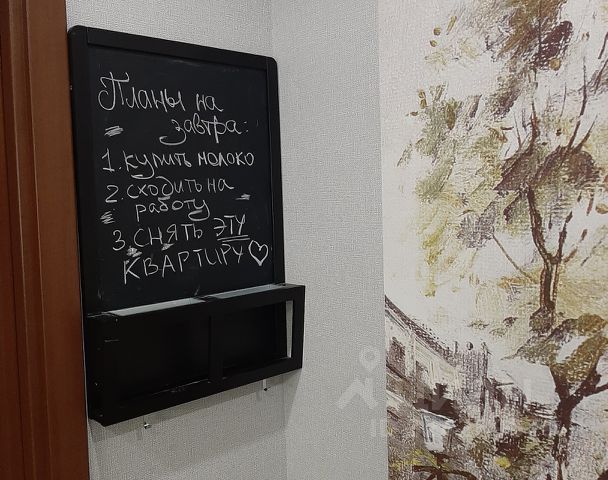 Планы на
завтра:
1. купить молоко
2. сходить на
работу
3. СНЯТЬ ЭТУ
КВАРТИРУ♡